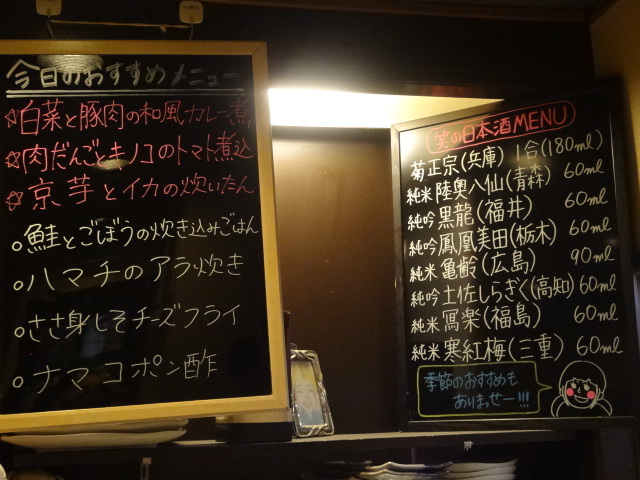 今日のおすすめメニュー
☆白菜と豚肉の和風カレー煮
☆肉だんごとキノコのトマト煮込
☆京芋とイカの炊いたん
○鮭とごぼうの炊き込みごはん
○ハマチのアラ炊き
○ささ身しそチーズフライ
○ナマコポン酢
笑の日本酒MENU
菊正宗(兵庫) 1合(180ml)
純米 陸奥八仙(青森) 60ml
純吟 黒龍(福井) 60ml
純吟 鳳凰美田(栃木) 60ml
純米 亀齢(広島) 90ml
純吟 土佐しらぎく(高知) 60ml
純米 冩楽(福島) 60ml
純米 寒紅梅(三重) 60ml
季節のおすすめも
ありまっせー!!!